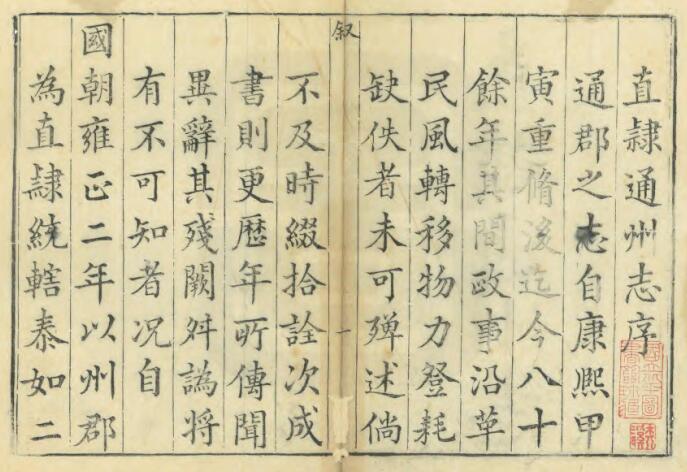 直隷通州志序
通郡之志自康熙甲
寅重脩後迄今八十
餘年其間政事沿革
民風轉移物力登耗
缺佚者未可殫述倘
叙
一
不及時綴拾詮次成
書則更歷年所傳聞
異辭其殘闕舛譌將
有不可知者况自
國朝雍正二年以州郡
為直隷統轄泰如二